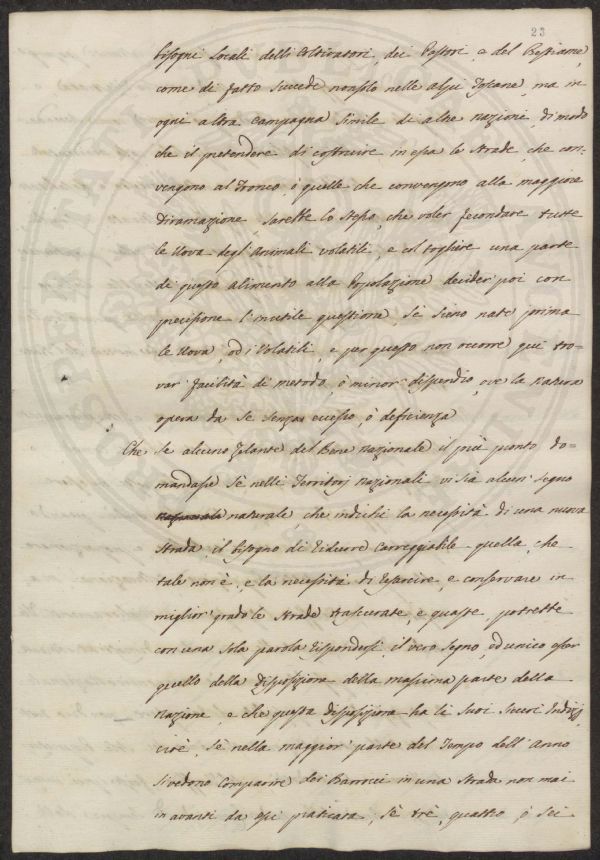 23
bisogni locali delli Coltivatori, dei Pastori, e del Bestiame,
come di fatto succede nonsolo nelle alpi Toscane, ma in
ogni altra campagna simile di altre nazioni, di modo
che il pretendere di costruire in essa le strade, che con-
vengono al Tronco, ò quelle che convengono alla maggiore
Diramazione, sarebbe lo stesso, che voler fecondare tutte
le Uova degl'Animali volatili, e col togliere una parte
di questo alimento alla Popolazione decider poi con
precisione l'inutile questione, sè sieno nate prima
le Uova, od i Volatili, e per questo non occorre qui tro-
var facilità di metodo, ò minor dispendio, ove la natura
opera da se senza eccesso, ò deficienza
Che se alcuno Zelante del Bene nazionale il più pronto do-
mandasse sè nelli Territorj nazionali vi sia alcun segno
naturale, che indichi la necessità di una nuova
strada, il bisogno di ridurre Carreggiabile quella, che
tale non è, e la necessità di risarcire, e conservare in
miglior grado le strade trascurate, e guaste, potrebbe
con una sola parola rispondersi, il vero segno, ed unico esser
quello della disposizione della massima parte della
nazione, e che questa disposizione ha li suoi sicuri Indizj,
cioè, sè nella maggior parte del Tempo dell'Anno
si vedono Comparire dei Barrocci in una strada non mai
in avanti da essi praticata, sè trè, quattro, ò sei